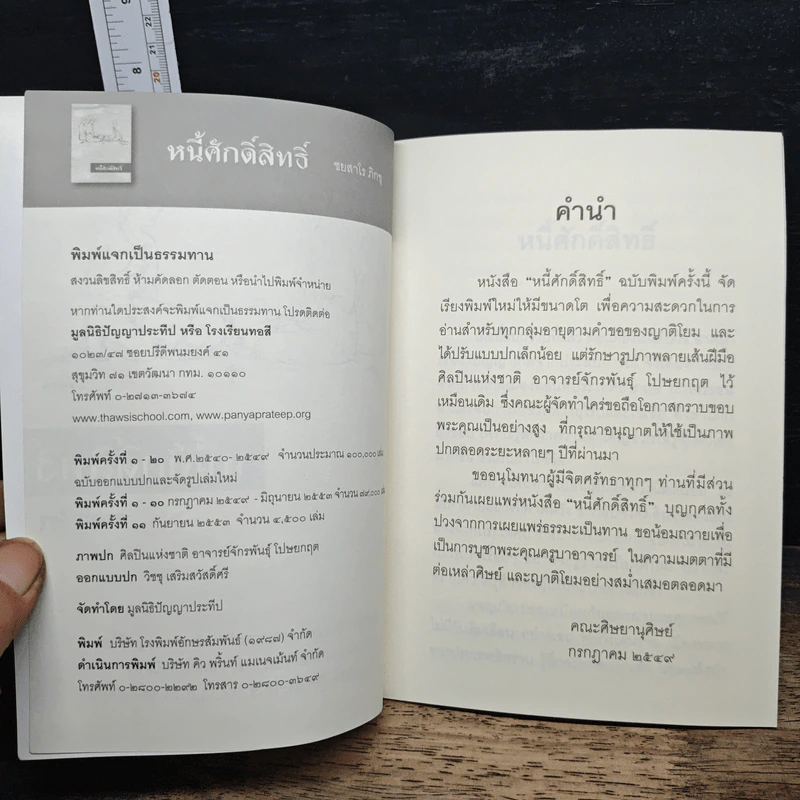 หนี้ศักดิ์สิทธิ์
ชยสาโร ภิกขุ
หนี้ศักดิ์สิทธิ์
พิมพ์แจกเป็นธรรมทาน
สงวนลิขสิทธิ์ ห้ามคัดลอก ตัดตอน หรือนำไปพิมพ์จำหน่าย
หากท่านใดประสงค์จะพิมพ์แจกเป็นธรรมทาน โปรดติดต่อ
มูลนิธิปัญญาประทีป หรือ โรงเรียนทอสี
๑๐๒๓/๔๗ ซอยปรีดีพนมยงค์ ๔๑
สุขุมวิท ๗๑ เขตวัฒนา กทม. ๑๐๑๑๐
โทรศัพท์ ๐-๒๗๑๓-๓๖๗๔
www.thawsischool.com, www.panyaprateep.org
พิมพ์ครั้งที่ ๑ - ๒๐ พ.ศ.๒๕๔๐- ๒๕๔๙ จำนวนประมาณ ๑๐๐,๐๐๐ เล่ม
ฉบับออกแบบปกและจัดรูปเล่มใหม่
พิมพ์ครั้งที่ ๑ - ๑๐ กรกฎาคม ๒๕๔๙ - มิถุนายน ๒๕๕๓ จำนวน ๗๙,๐๐๐ เล่ม
พิมพ์ครั้งที่ ๑๑ กันยายน ๒๕๕๓ จำนวน ๔,๕๐๐ เล่ม
ภาพปก ศิลปินแห่งชาติ อาจารย์จักรพันธุ์ โปษยกฤต
ออกแบบปก วิชชุ เสริมสวัสดิ์ศรี
จัดทำโดย มูลนิธิปัญญาประทีป
พิมพ์ บริษัท โรงพิมพ์อักษรสัมพันธ์ (๑๙๘๗) จำกัด
ดำเนินการพิมพ์ บริษัท คิว พริ้นท์ แมเนจเม้นท์ จำกัด
โทรศัพท์ ๐-๒๘๐๐-๒๒๙๒ โทรสาร ๐-๒๘๐๐-๓๖๔๙
คำนำ
หนังสือ "หนี้ศักดิ์สิทธิ์" ฉบับพิมพ์ครั้งนี้ จัด
เรียงพิมพ์ใหม่ให้มีขนาดโต เพื่อความสะดวกในการ
อ่านสำหรับทุกกลุ่มอายุตามคำขอของญาติโยม และ
ได้ปรับแบบปกเล็กน้อย แต่รักษารูปภาพลายเส้นฝีมือ
ศิลปินแห่งชาติ อาจารย์จักรพันธุ์ โปษยกฤต ไว้
เหมือนเดิม ซึ่งคณะผู้จัดทำใคร่ขอถือโอกาสกราบขอบ
พระคุณเป็นอย่างสูง ที่กรุณาอนุญาตให้ใช้เป็นภาพ
ปกตลอดระยะหลายๆ ปีที่ผ่านมา
ขออนุโมทนาผู้มีจิตศรัทธาทุกๆ ท่านที่มีส่วน
ร่วมกันเผยแพร่หนังสือ "หนี้ศักดิ์สิทธิ์" บุญกุศลทั้ง
ปวงจากการเผยแพร่ธรรมะเป็นทาน ขอน้อมถวายเพื่อ
เป็นการบูชาพระคุณครูบาอาจารย์ ในความเมตตาที่มี
ต่อเหล่าศิษย์ และญาติโยมอย่างสม่ำเสมอตลอดมา
คณะศิษยานุศิษย์
กรกฎาคม ๒๕๔๙
9
8
22
21
20